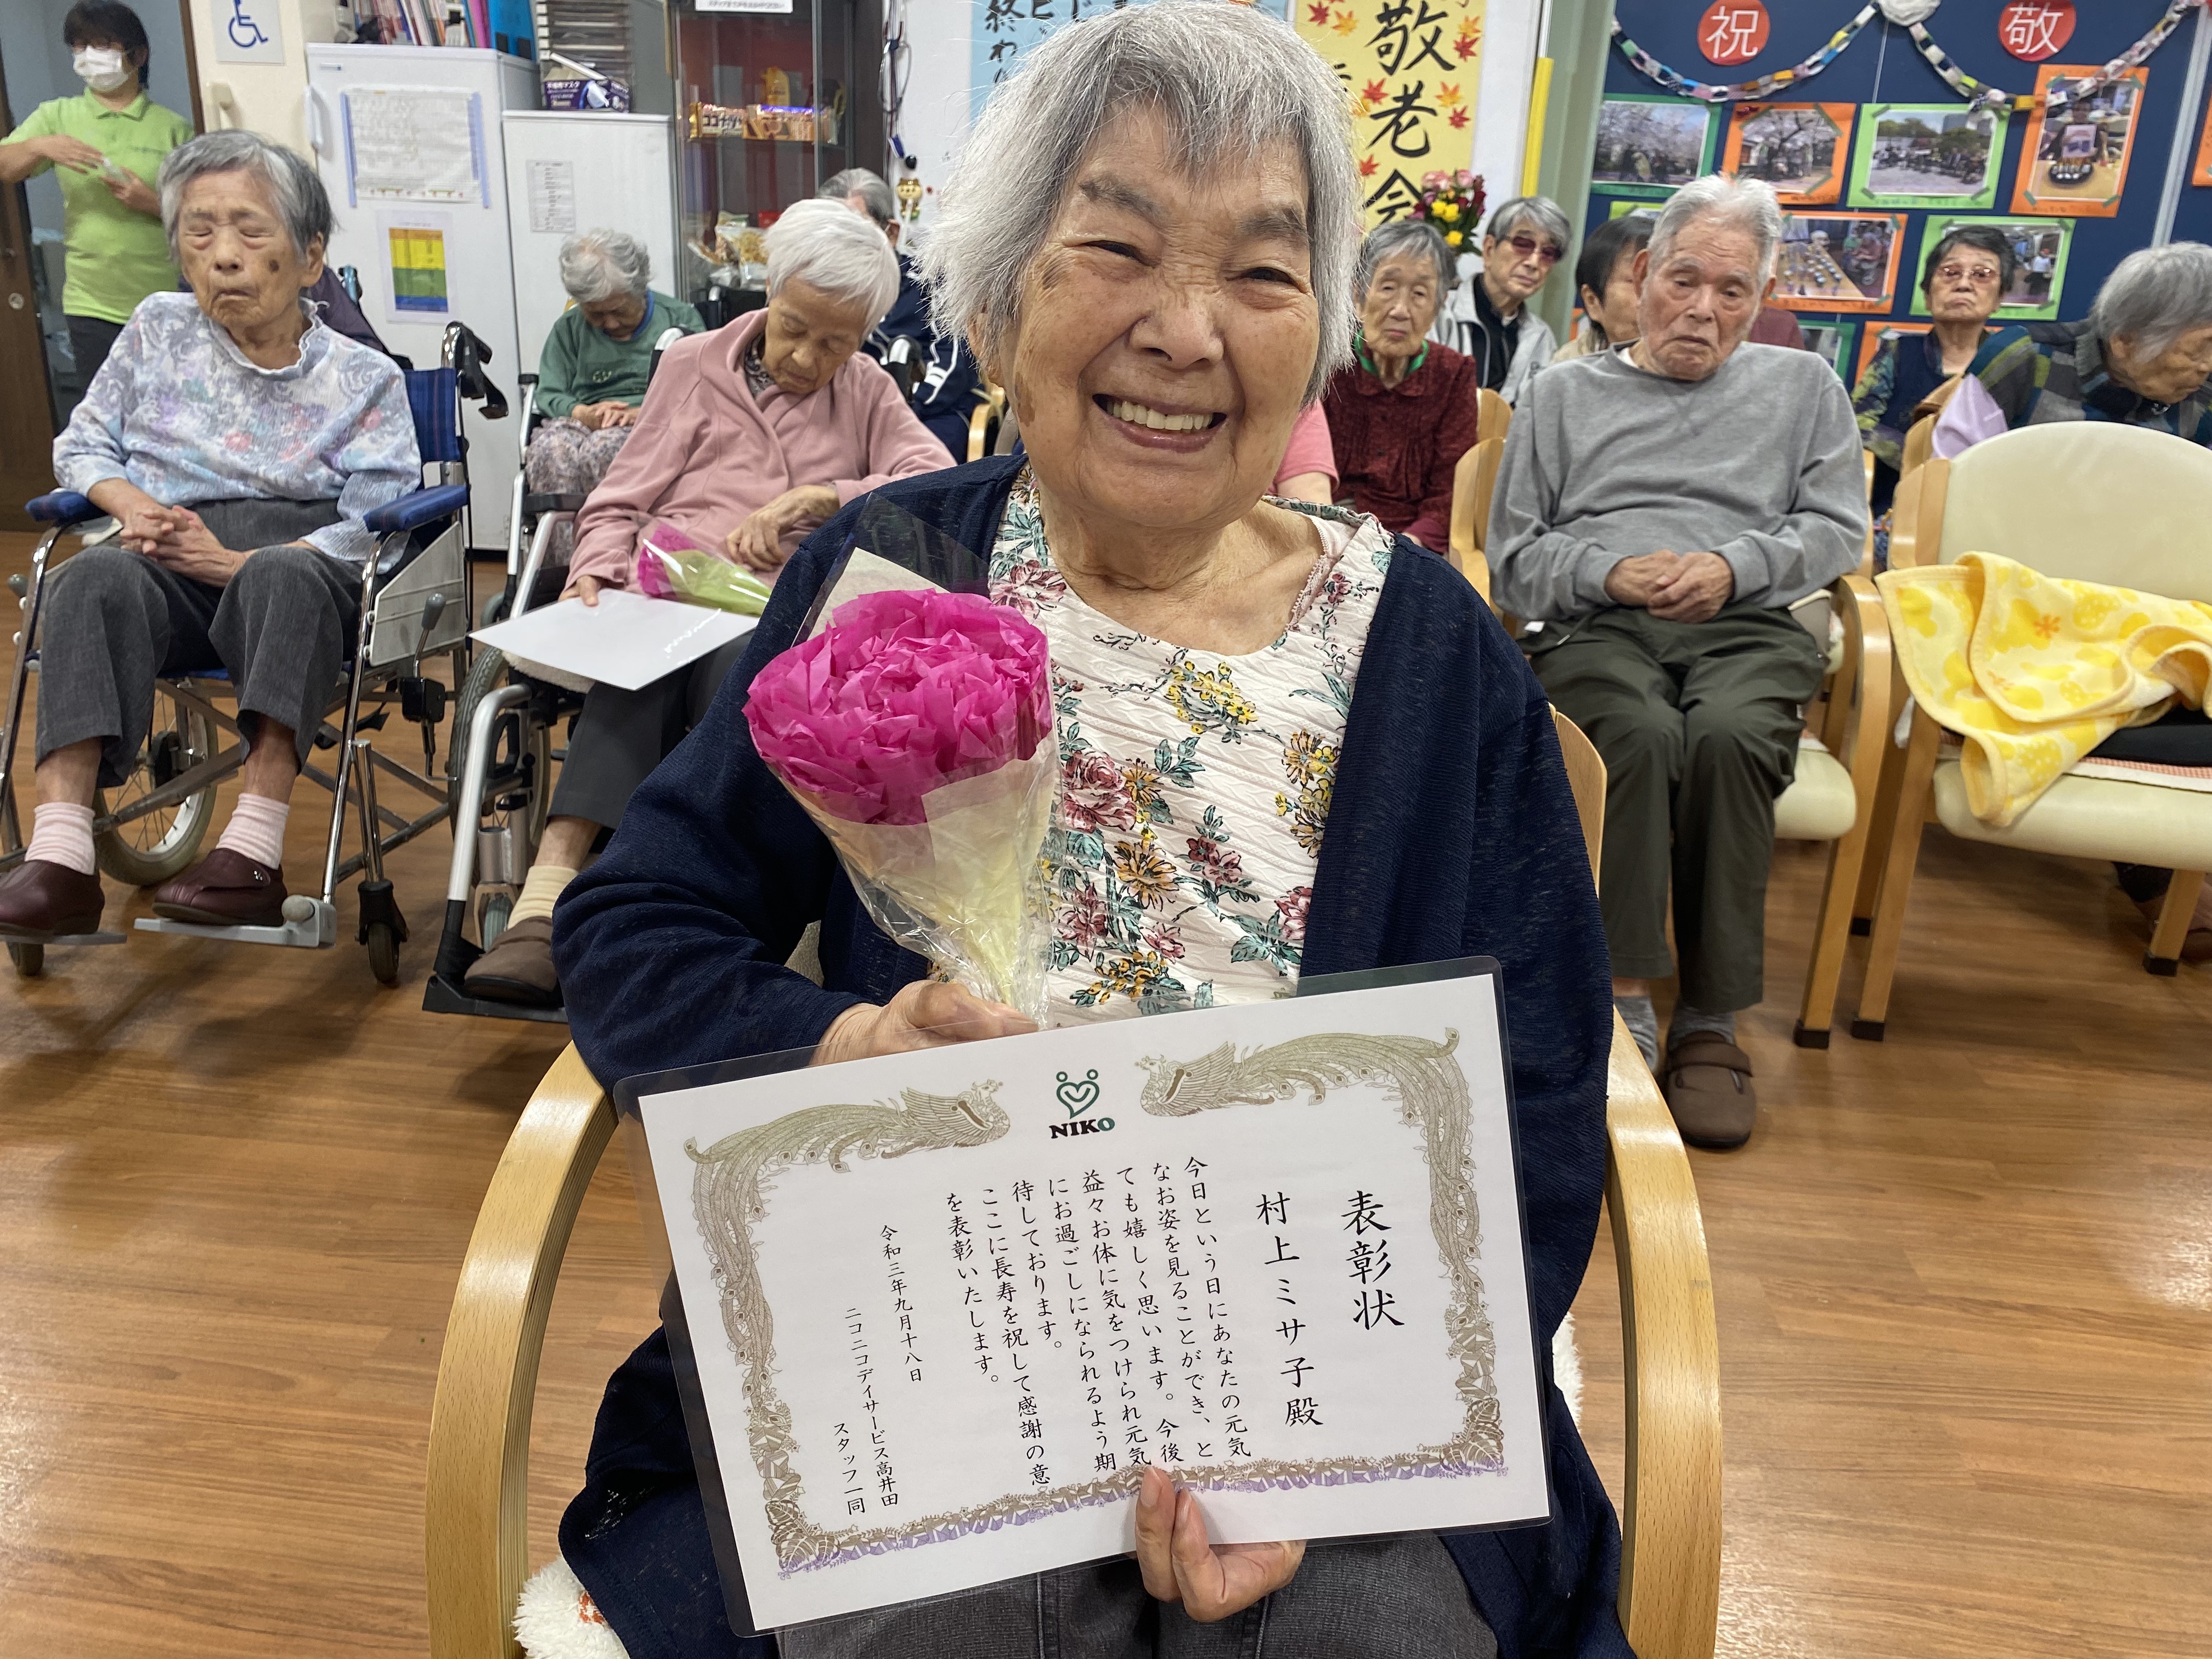 祝
敬
敬老会
終わり
ココナッツ
NIKO
表彰状
村上ミサ子殿
今日という日にあなたの元気
なお姿を見ることができ、と
ても嬉しく思います。今後
益々お体に気をつけられ元気
にお過ごしになられるよう期
待しております。
ここに長寿を祝して感謝の意
を表彰いたします。
令和三年九月十八日
ニコニコデイサービス高井田
スタッフ一同